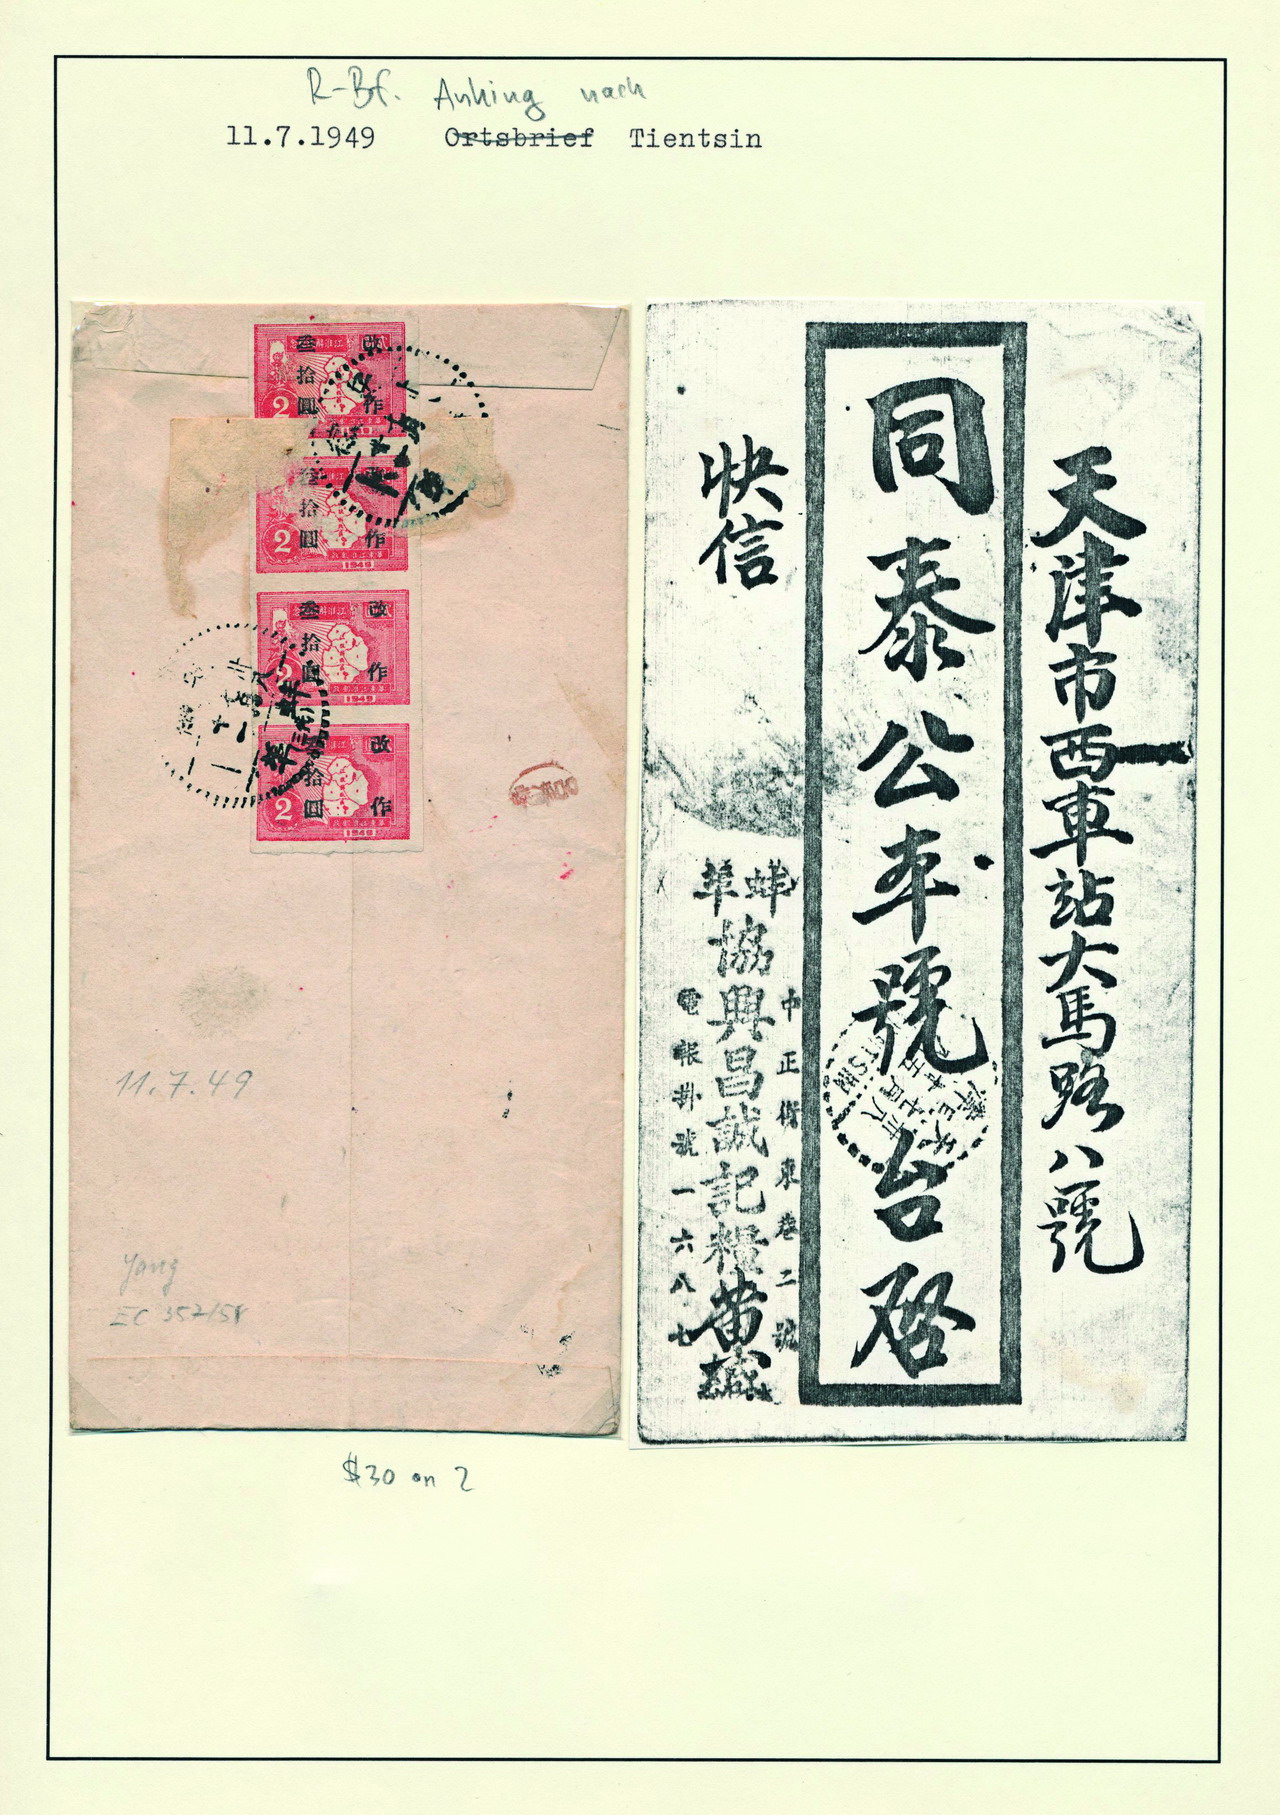 R-Bf. Anking nach
11.7.1949 Ortsbrief Tientsin
改作
叁拾圓
2
改作
叁拾圓
2
1949
改作
叁拾圓
2
1949
改作
拾圓
2
1949
11.7.49
Yang
EC 357/58
$30 on 2
天津市西車站大馬路八號
同泰公車號台啓
快信
蚌埠
中正街東巷二號
協興昌誠記糧
電報掛號一六八七